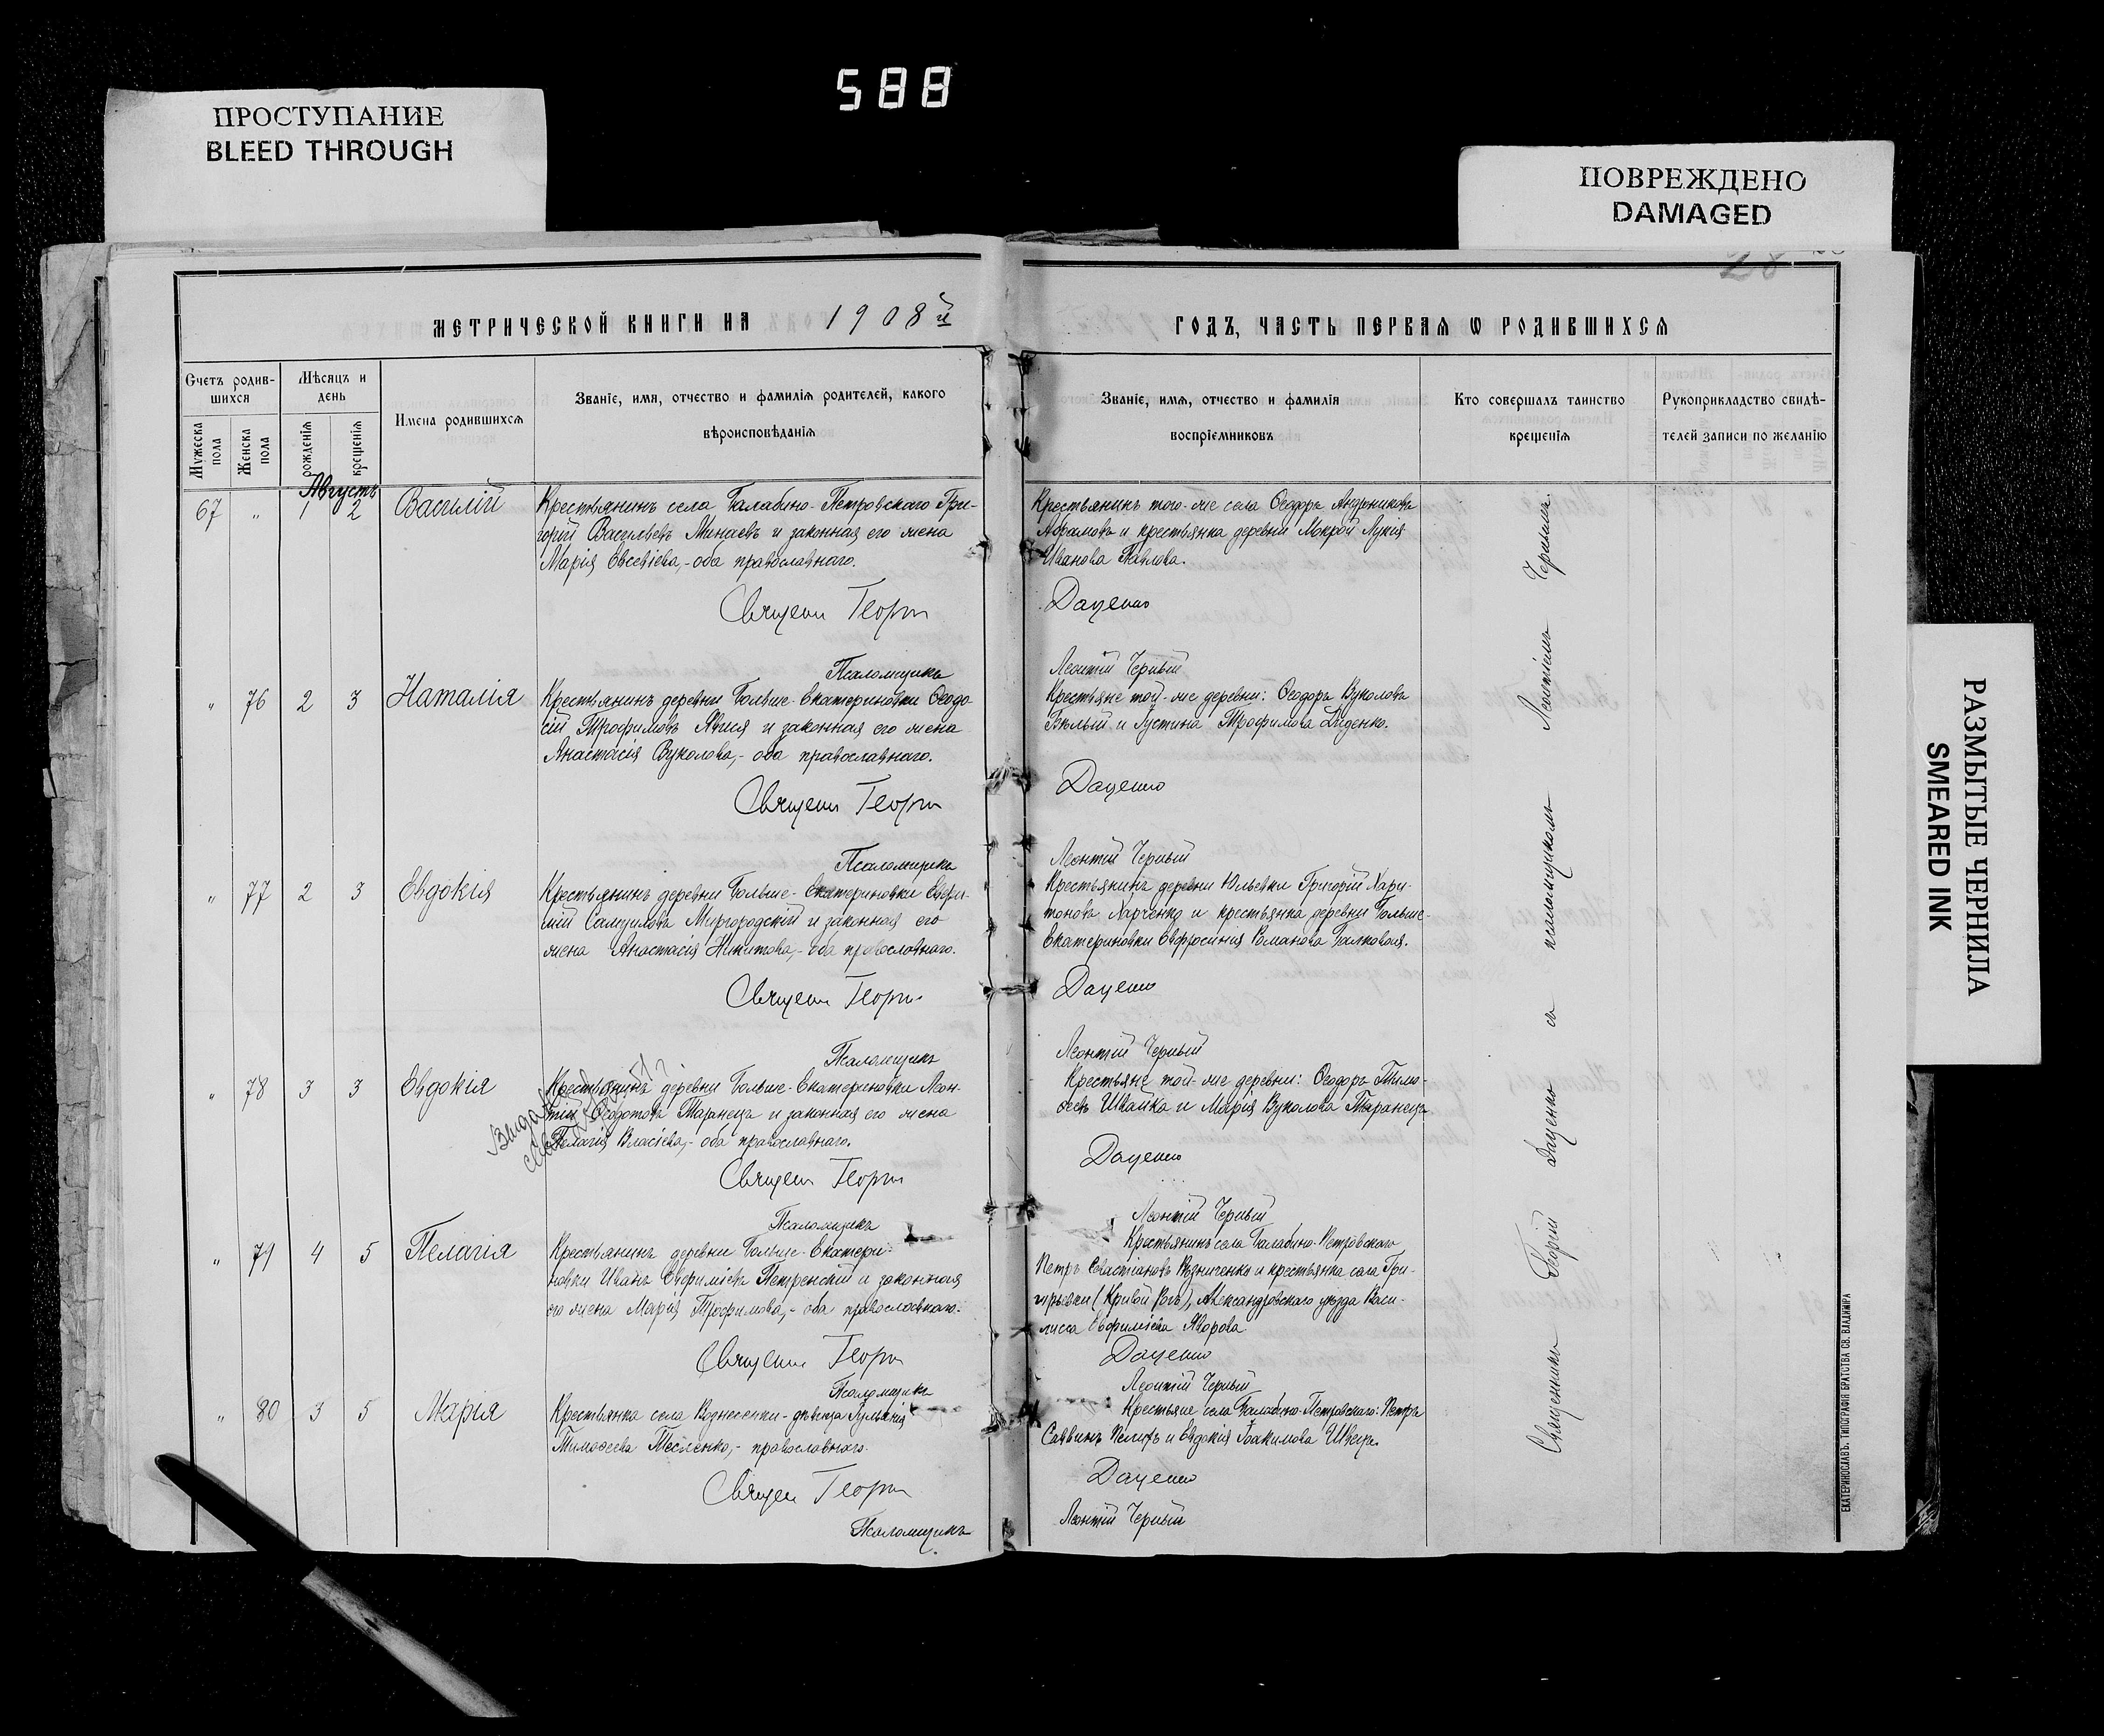 588
ПРОСТУПАНИЕ
BLEED THROUGH
ПОВРЕЖДЕНО
DAMAGED
РАЗМЫТЫЕ ЧЕРНИЛА
SMEARED INK
28
МЕТРИЧЕСКОЙ КНИГИ НА 1908й
ГОДЪ, ЧАСТЬ ПЕРВАЯ Ѡ РОДИВШИХСЯ
Счетъ родив-
шихся
Мужеска
пола
Женска
пола
Мѣсяцъ и
день
рожденія
крещенія
Имена родившихся
Званіе, имя, отчество и фамилія родителей, какого
вѣроисповѣданія
Званіе, имя, отчество и фамилія
воспріемниковъ
Кто совершалъ таинство
крещенія
Рукоприкладство свидѣ-
телей записи по желанію
Августъ
67 " 1 2 Василій
Крестьянинъ села Балабино-Петровскаго Гри-
горій Васильевъ Минаевъ и законная его жена
Марія Евсевіева,- оба православнаго.
Священ Георги
Псаломщикъ
Крестьянинъ того-же села Ѳеодоръ Андрониковъ
Абрамовъ и крестьянка деревни Мокрой Лукія
Иванова Павлова.
Даценко
Леонтій Черный
" 76 2 3 Наталія
Крестьянинъ деревни Больше-Екатериновки Ѳеодо-
сій Трофимовъ и законная его жена
Анастасія Вуколова,- оба православнаго.
Священ Георги
Псаломщикъ
Крестьяне той-же деревни: Ѳеодоръ Вуколовъ
Бѣлый и Іустина Трофимова Диденко.
Даценко
Леонтій Черный
" 77 2 3 Евдокія
Крестьянинъ деревни Больше-Екатериновки Евфи-
мій Самуиловъ Миргородскій и законная его
жена Анастасія Никитова,- оба православнаго.
Священ Георги
Псаломщикъ
Крестьянинъ деревни Юльевки Григорій Хари-
тоновъ Харченко и крестьянка деревни Больше-
Екатериновки Евфросинія Романова Балковая.
Даценко
Леонтій Черный
" 78 3 3 Евдокія
Крестьянинъ деревни Больше-Екатериновки Леон-
тій Ѳеодотовъ Таранецъ и законная его жена
Пелагія Власіева,- оба православнаго.
Священ Георги
Псаломщикъ
Крестьяне той-же деревни: Ѳеодоръ Тимо-
ѳеевъ Швайка и Марія Вуколова Таранецъ
Даценко
Леонтій Черный
" 79 4 5 Пелагія
Крестьянинъ деревни Больше-Екатери-
новки Иванъ Евфиміевъ Петренскій и законная
его жена Марія Трофимова,- оба православнаго.
Священ Георги
Псаломщикъ
Крестьянинъ села Балабино-Петровскаго
Петръ Севастіановъ Рѣзниченко и крестьянка села Гри-
горьевки (Кривой Рогъ), Александровскаго уѣзда Васи-
лисса Евфиміева Яворова
Даценко
Леонтій Черный
" 80 3 5 Марія
Крестьянка села Вознесенки- дѣвица Гульянія
Тимоѳеева Тесленко,- православнаго.
Священ Георги
Псаломщикъ
Крестьяне села Балабино-Петровскаго: Петръ
Саввинъ и Евдокія Іоакимова Швецъ.
Даценко
Леонтій Черный
Священникъ Георгій Даценко съ псаломщикомъ Леонтіемъ Чернымъ.
ЕКАТЕРИНОСЛАВЪ. ТИПОГРАФІЯ БРАТСТВА СВ. ВЛАДИМІРА